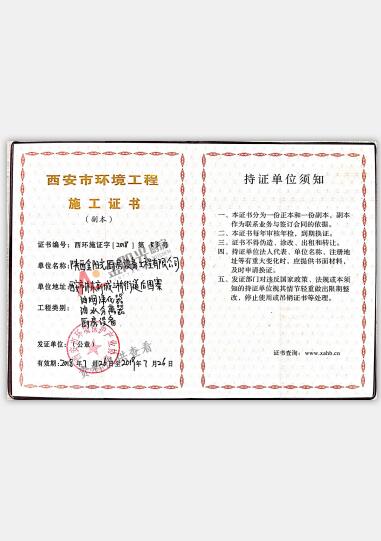 西安市环境工程
施工证书
(副本)
证书编号：西环施证字[2018]第
单位名称：陕西金阳光厨房设备工程有限公司
单位地址：
工程类别：油烟净化器
油水分离器
厨房设备
发证单位：(公章)
有效期：2018年7月26日至2019年7月26日
持证单位须知
一、本证书分为一份正本和一份副本，副本
作为联系业务与签订合同的依据。
二、本证书每年审核年检，到期换证。
三、证书不得伪造、涂改、出租和转让。
四、持证单位法人代表、单位名称、注册地
址等有重大变化时，应提供书面材料，
及时申请换证。
五、发证部门对违反国家政策、法规或本须
知的持证单位视其情节轻重做出限期整
改，停止使用或吊销证书等处理。
证书查询：www.xahb.cn